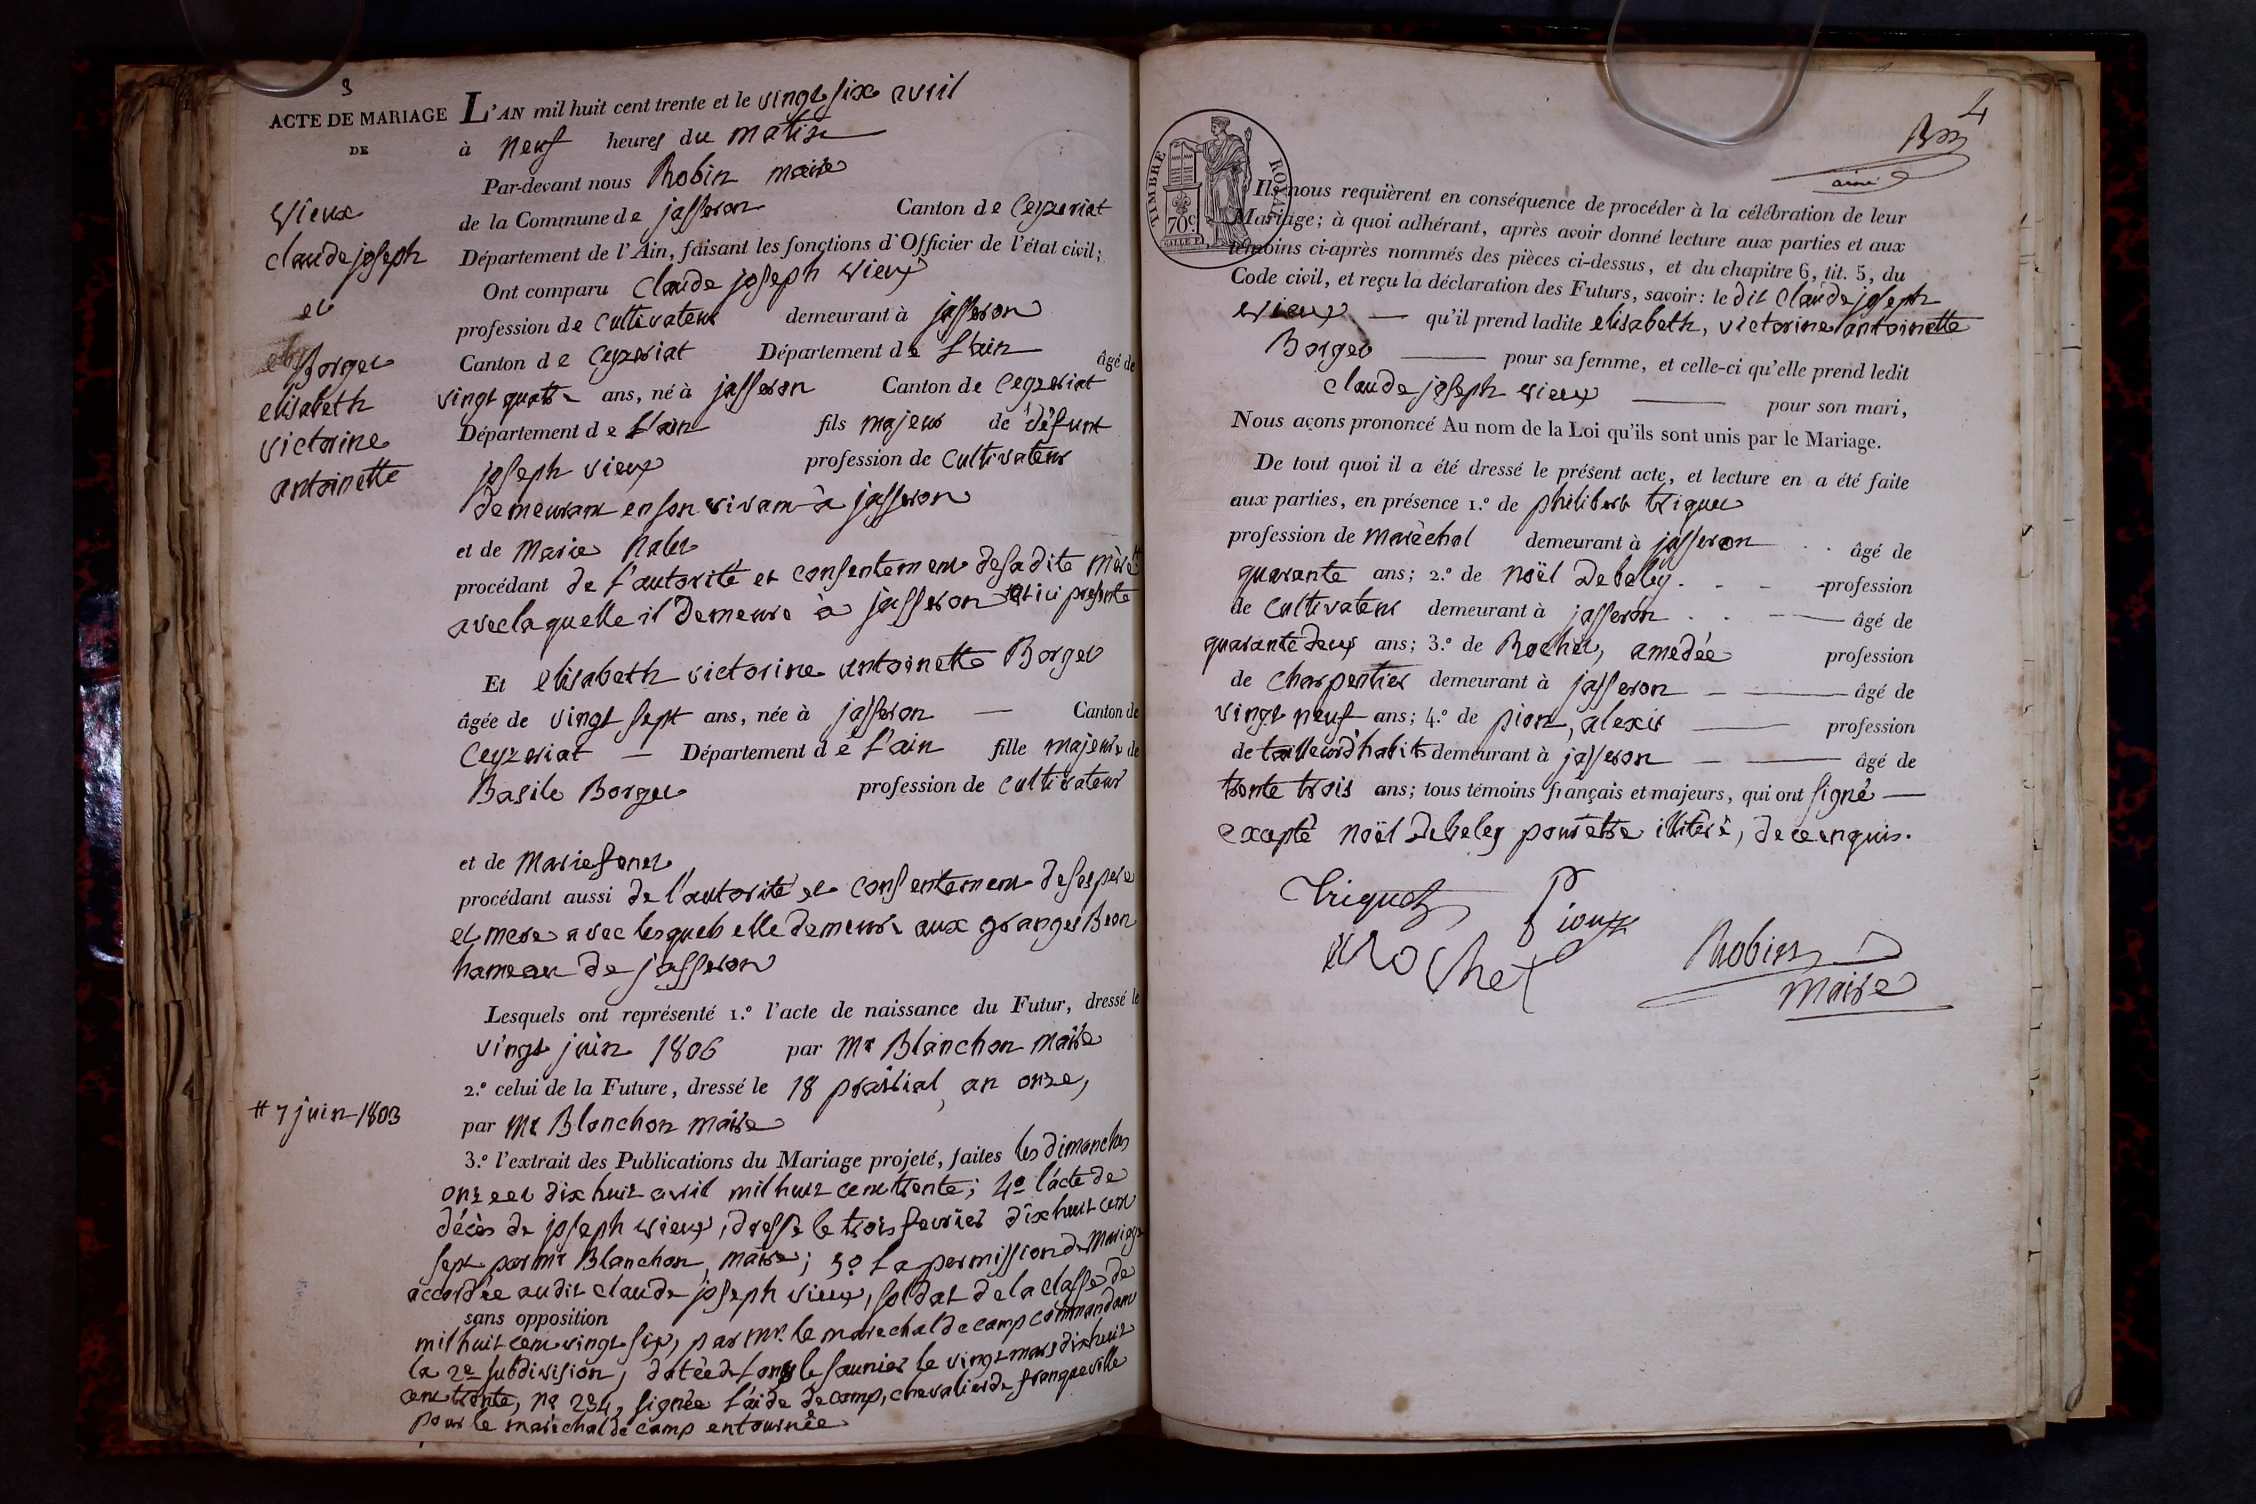 3
ACTE DE MARIAGE
DE
Vieux
claude joseph
et
Borget
elisabeth
victorine
antoinette
# 7 juin 1803
L'AN mil huit cent trente et le vingt six avril
à neuf heures du matin
Par-devant nous Robin maire
de la Commune de jasseron Canton de Ceyzeriat
Département de l'Ain, faisant les fonctions d'Officier de l'état civil;
Ont comparu Claude joseph vieux
profession de cultivateur demeurant à jasseron
Canton de Ceyzeriat Département de l'ain âgé de
vingt quatre ans, né à jasseron Canton de Ceyzeriat
Département de l'ain fils majeur de défunt
joseph vieux profession de cultivateur
demeurant en son vivant à jasseron
et de Marie
procédant de l'autorité et consentement de sa dite mère
avec laquelle il demeure à jasseron et ici presente
Et elisabeth victorine antoinette Borget
âgée de vingt sept ans, née à jasseron — Canton de
Ceyzeriat — Département de l'ain fille majeure de
Basile Borget profession de cultivateur
et de Marie
procédant aussi de l'autorité et consentement de ses pere
et mere avec lesquels elle demeure aux granges Bron
hameau de jasseron
Lesquels ont représenté 1.º l'acte de naissance du Futur, dressé le
vingt juin 1806 par Mr Blanchon maire
2.º celui de la Future, dressé le 18 prairial an onze,
par Mr Blanchon maire
3.º l'extrait des Publications du Mariage projeté, faites les dimanches
onze et dix huit avril mil huit cent trente; 4º l'acte de
décès de joseph vieux, dressé le trois fevrier dix huit cent
sept par Mr Blanchon, maire; 5º La permission de Mariage
accordée au dit claude joseph vieux, soldat de la classe de
sans opposition
mil huit cent vingt six, par Mr. le marechal de camp commandant
la 2e subdivision, datée de Lons le saunier le vingt mars dix huit
cent trente, nº 234, signée l'aide de camp, chevalier de franqueville
pour le maréchal de camp en tournée
4
ainé
TIMBRE ROYAL
70c.
Ils nous requièrent en conséquence de procéder à la célébration de leur
Mariage; à quoi adhérant, après avoir donné lecture aux parties et aux
témoins ci-après nommés des pièces ci-dessus, et du chapitre 6, tit. 5, du
Code civil, et reçu la déclaration des Futurs, savoir: le dit claude joseph
vieux — qu'il prend ladite elisabeth, victorine antoinette
Borget — pour sa femme, et celle-ci qu'elle prend ledit
claude joseph vieux — pour son mari,
Nous avons prononcé Au nom de la Loi qu'ils sont unis par le Mariage.
De tout quoi il a été dressé le présent acte, et lecture en a été faite
aux parties, en présence 1.º de philibert triquet
profession de maréchal demeurant à jasseron âgé de
quarante ans; 2.º de Noël Debeley profession
de cultivateur demeurant à jasseron âgé de
quarante deux ans; 3.º de Rochet, amedée profession
de charpentier demeurant à jasseron — âgé de
vingt neuf ans; 4.º de pion, alexis — profession
de tailleur d'habits demeurant à jasseron — âgé de
trente trois ans; tous témoins français et majeurs, qui ont signé —
excepté Noël Debeley pour être illitéré, de ce enquis.
Triquet
Pion
Rochet
Robin
maire